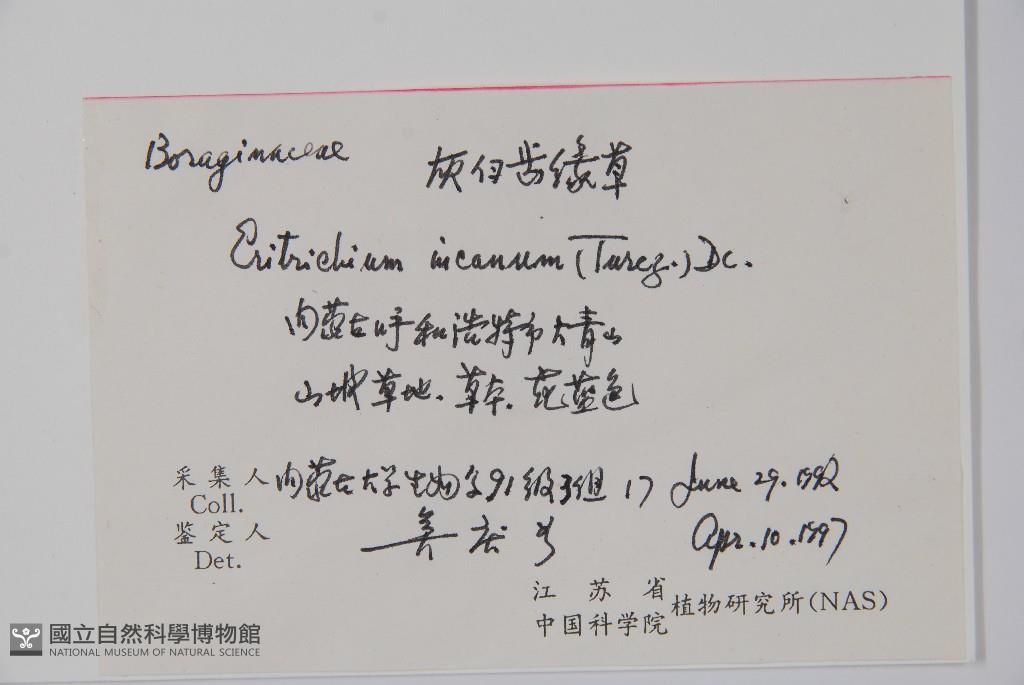 Boraginaceae 灰白齿缘草
Eritrichium incanum (Turcz.) DC.
内蒙古呼和浩特市大青山
山坡草地. 草本. 花蓝色
采集人 内蒙古大学生物系91级3组 17 June 29. 1992
Coll.
鉴定人 Apr. 10. 1997
Det.
江苏省
中国科学院 植物研究所(NAS)
國立自然科學博物館
NATIONAL MUSEUM OF NATURAL SCIENCE